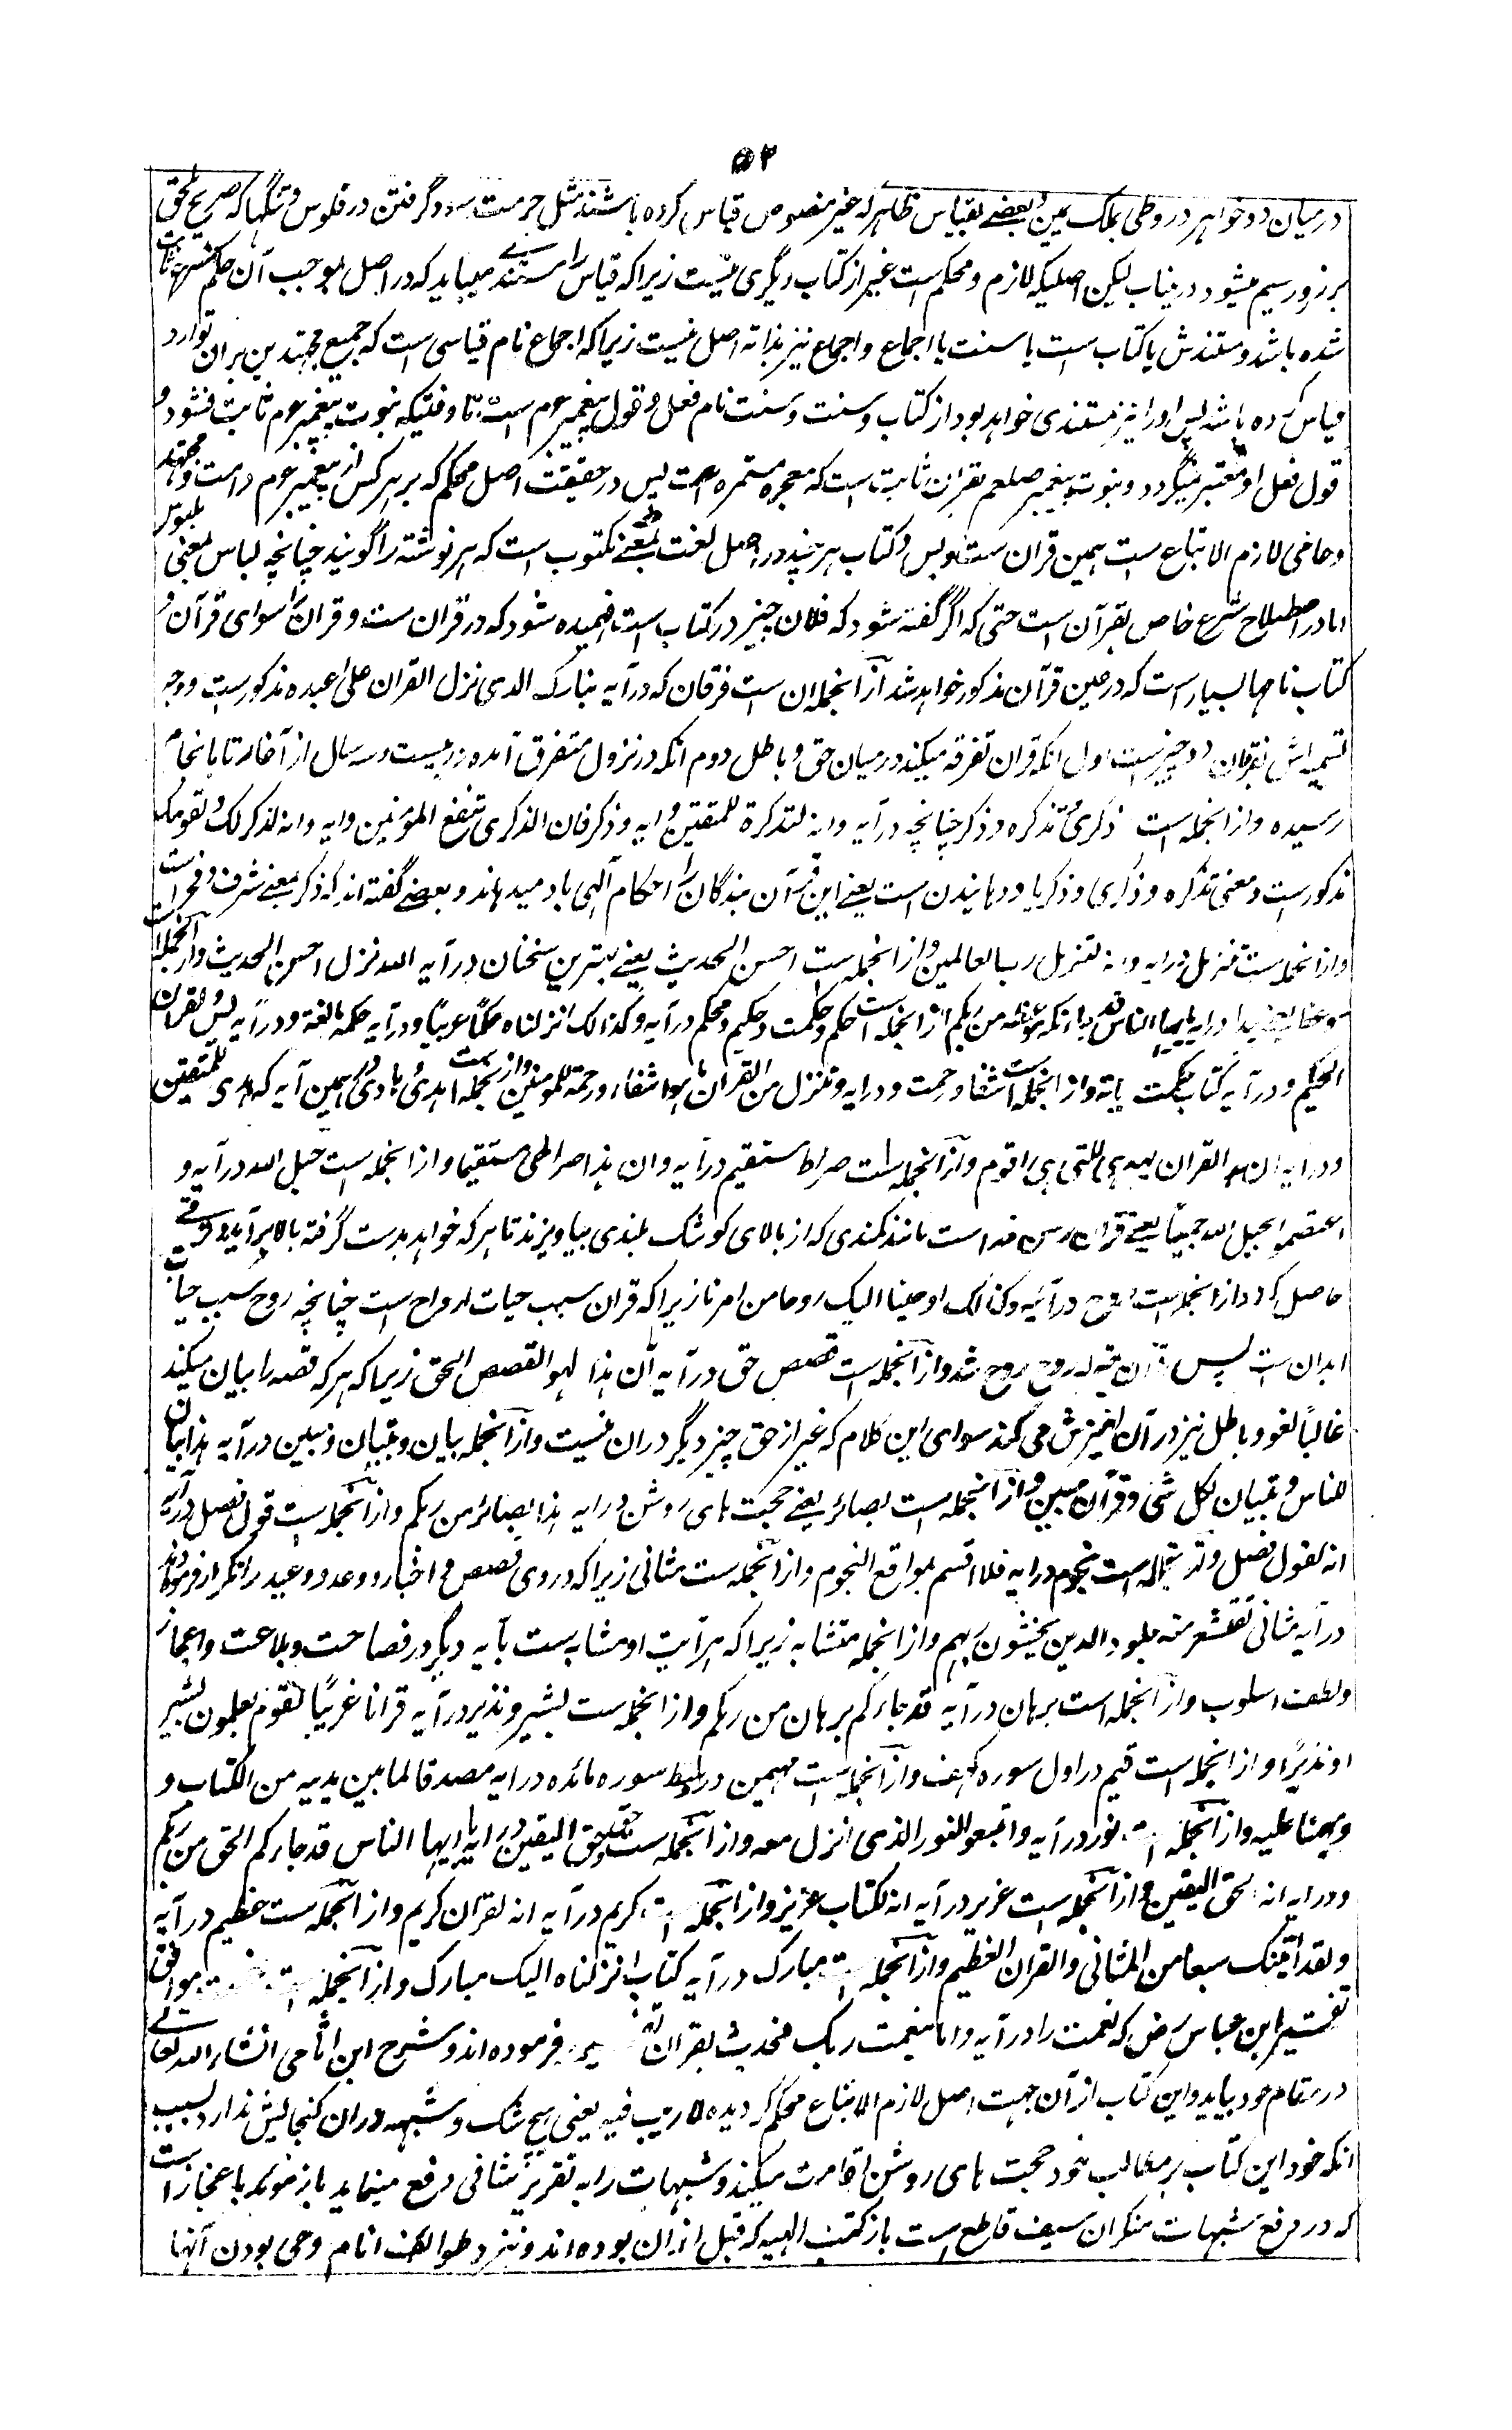 ۵۲
درمیان دو خواهر در وطی بملک یمین و بعضے بقیاس ظاهر که غیر منصوص قیاس کرده باشند مثل حرمت سود گرفتن در فلوس و تنگها که صریح ملحق
بزر و سیم میشود درینباب لیکن اصلیکه لازم و محکم است غیر از کتاب دیگری نیست زیرا که قیاس را مستندے میباید که در اصل بموجب آن حکم
شده باشد و مستندش یا کتاب است یا سنت یا اجماع و اجماع نیز بذاته اصل نیست زیرا که اجماع نام قیاسی است که جمیع مجتهدین بران توارد
قیاس کرده باشند پس او را نیز مستندی خواهد بود از کتاب و سنت و سنت نام فعل و قول پیغمبر عم است تا وقتیکه نبوت پیغمبر عم ثابت نشود
قول فعل او معتبر نمیگردد و نبوت پیغمبر صلعم بقران ثابت است که معجزه مستمره است پس در حقیقت اصل محکم که بر هر کس از پیغمبر عم و امت و مجتهد
و عامی لازم الاتباع ست همین قران ست و بس و کتاب هر چند در اصل لغت بمعنے مکتوب است که هر نوشته را گویند چنانچه لباس بمعنی ملبوس
اما در اصطلاح شرع خاص بقرآن است حتی که اگر گفته شود که فلان چیز در کتاب است فهمیده شود که در قران ست و قران را سوای قرآن و
کتاب نامها بسیار است که در عین قرآن مذکور خواهد شد از انجمله ان ست فرقان که در آیه تبارک الذی نزل الفرقان علی عبده مذکور ست و وجه
تسمیه اش بفرقان دو چیز است اول انکه قران تفرقه میکند درمیان حق و باطل دوم انکه در نزول متفرق آمده در بیست و سه سال از آغاز تا بانجام
رسیده و از انجمله است ذکری و تذکره و ذکر چنانچه در آیه وانه لتذکرة للمتقین و ایه وذکر فان الذکری تنفع المؤمنین و ایه وانه لذکر لک ولقومک
مذکور ست و معنی تذکره و ذکری و ذکر یاد دهانیدن است یعنے این قرآن بندگان را احکام آلهی یاد میدهاند و بعضے گفته اند که ذکر بمعنے شرف و فخر است
و از انجمله ست تنزیل در ایه وانه لتنزیل رب العالمین و از انجمله ست احسن الحدیث یعنے بهترین سخنان در آیه الله نزل احسن الحدیث و از انجمله است
موعظه در ایه یا ایها الناس قد جاءتکم موعظة من ربکم از انجمله است حکم و حکمت و حکیم و محکم در آیه وکذالک انزلناه حکما عربیا و در آیه حکمة بالغة و در آیه یس والقران
الحکیم و در آیه کتاب احکمت آیاته و از انجمله است شفا و رحمت و در ایه وننزل من القرآن ما هو شفاء ورحمة للمومنین و از انجمله است هدی و هادی همین آیه که هدی للمتقین
و در ایه ان هذا القران یهدی للتی هی اقوم و از آنجمله است صراط مستقیم در آیه وان هذا صراطی مستقیما و از انجمله ست حبل الله در آیه و
اعتصموا بحبل الله جمیعا یعنے قران رسن خداست مانند کمندی که از بالای کوشک بلندی بیاویزند تا هر که خواهد بدست گرفته بالا برآید و ترقے
حاصل کند و از انجمله است روح در آیه وکذالک اوحینا الیک روحا من امرنا زیرا که قران سبب حیات ارواح است چنانچه روح سبب حیات
ابدان ست پس قران بمنزله روح روح شد و از انجمله ست قصص حق در آیه ان هذا لهو القصص الحق زیرا که هر که قصه را بیان میکند
غالباً لغو و باطل نیز در آن آمیزش می کند سوای این کلام که غیر از حق چیز دیگر دران نیست و از آنجمله بیان و تبیان و مبین در آیه هذا بیان
للناس و تبیان لکل شیٔ وقرآن مبین و از انجمله ست بصائر یعنے حجت های روشن در ایه هذا بصائر من ربکم و از آنجمله ست قول فصل در آیه
انه لقول فصل و از انجمله است نجوم در ایه فلا اقسم بمواقع النجوم و از آنجمله ست مثانی زیرا که در وی قصص و اخبار و وعد و وعید را تکرار فرموده اند
در آیه مثانی تقشعر منه جلود الذین یخشون ربهم و از انجمله متشابه زیرا که هر آیت او مشابه ست بآیه دیگر در فصاحت و بلاغت و اعجاز
و لطف اسلوب و از آنجمله است برهان در آیه قد جاءکم برهان من ربکم و از انجمله ست بشیر و نذیر در آیه قرانا عربیا لقوم یعلمون بشیر
او نذیرا و از انجمله ست قیم در اول سوره کهف و از آنجمله است مهیمن در وسط سوره مائده در ایه مصدقا لما بین یدیه من الکتاب و
ومهیمنا علیه و از آنجمله است نور در آیه واتبعوا النور الذی انزل معه و از انجمله ست حق و حق الیقین در ایه یا ایها الناس قد جاءکم الحق من ربکم
و در ایه انه لحق الیقین و از انجمله ست عزیز در آیه انه لکتاب عزیز و از انجمله است کریم در آیه انه لقران کریم و از انجمله ست عظیم در آیه
ولقد اتینک سبعا من المثانی والقران العظیم و از آنجمله است مبارک در آیه کتاب انزلناه الیک مبارک و از آنجمله است موافق
تفسیر ابن عباس رض که نعمت را در آیه واما بنعمت ربک فحدث بقران فرموده اند و شرح این اسامی انشاء الله تعالے
در مقام خود بیاید و این کتاب از آن جهت اصل لازم الاتباع محکم گردیده لا ریب فیه یعنی هیچ شک و شبهه دران گنجایش ندارد بسبب
انکه خود این کتاب بر مطالب خود حجت های روشن اقامت میکند و شبهات را به تقریر شافی دفع مینماید باز موید باعجاز است
که در دفع شبهات منکران سیف قاطع ست باز کتب الهیه که قبل از ان بوده اند و نزد طوائف انام وحی بودن آنها